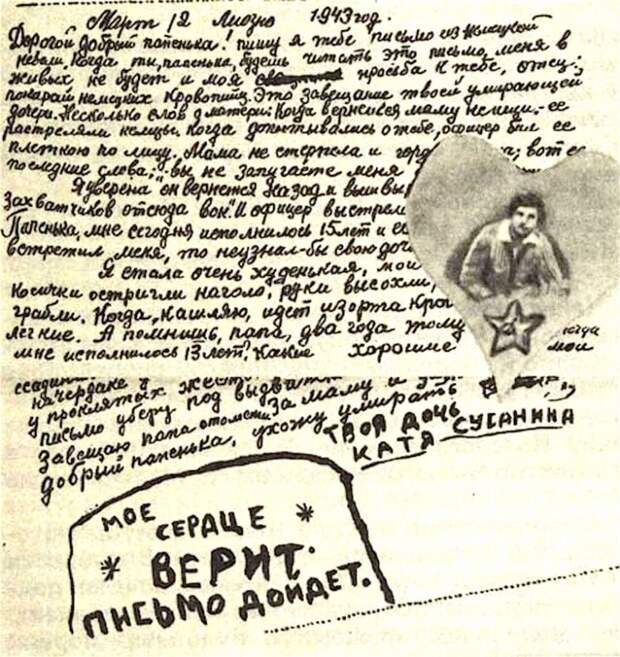 Март 12 Лиозно 1943 год.
Дорогой добрый папенька! пишу я тебе письмо из немецкой
неволи. Когда ты, папенька, будешь читать это письмо, меня в
живых не будет и моя просьба к тебе, отец:
покарай немецких кровопийц. Это завещание твоей умирающей
дочери. Несколько слов о матери: Когда вернешься маму не ищи.- ее
расстреляли немцы. Когда допытывались о тебе, офицер бил ее
плеткою по лицу. Мама не стерпела и гор; вот ее
последние слова; "вы не запугаете меня
Я уверена он вернется назад и вышвы
захватчиков отсюда вон". И офицер выстрел
Папенька, мне сегодня исполнилось 15 лет и ес
встретил меня, то неузнал-бы свою доч
Я стала очень худенькая, мои
косички остригли наголо, руки высохли,
грабли. Когда, кашляю, идет изо рта кро
легкие. А помнишь, папа, два года тому
мне исполнилось 13 лет? Какие хорошие
мои
ссадин
на чердаке
у проклятых жест
письмо уберу под
Завещаю папа отомсти за маму и
добрый папенька, ухожу умирать
твоя дочь
КАТЯ СУСАНИНА
МОЕ
СЕРДЦЕ
* ВЕРИТ. *
ПИСЬМО ДОЙДЕТ.